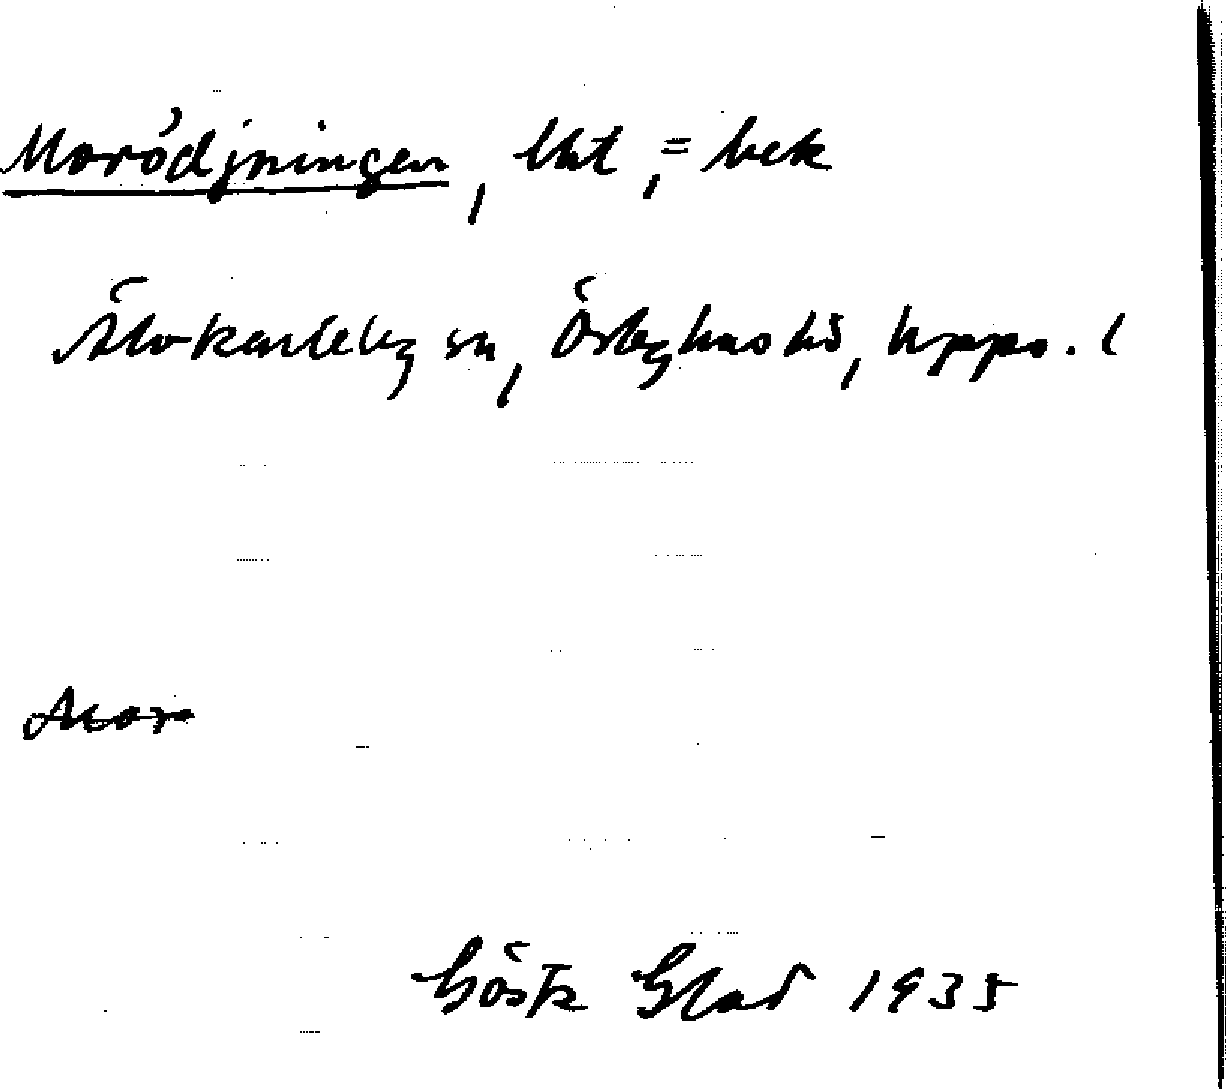 Morödjningen, Utt, = bek
Älvkarleby sn, Örbyhus hd, Upps. l
Mor
Gösta Glad 1935